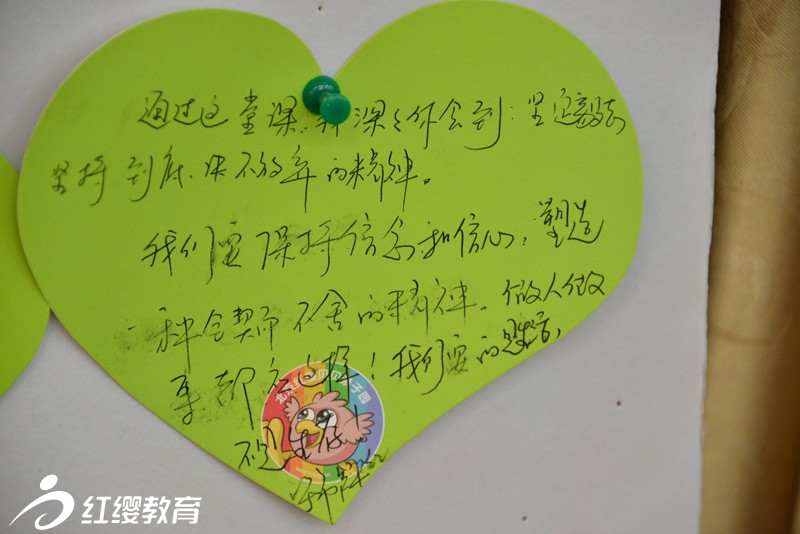 通过这堂课，我深深体会到：坚定毅志
坚持到底、决不放弃的精神。
我们要保持信念和信心，塑造
一种会契而不舍的精神。做人做事
都应这样！我们要的是生活，
不是生存！
红缨教育